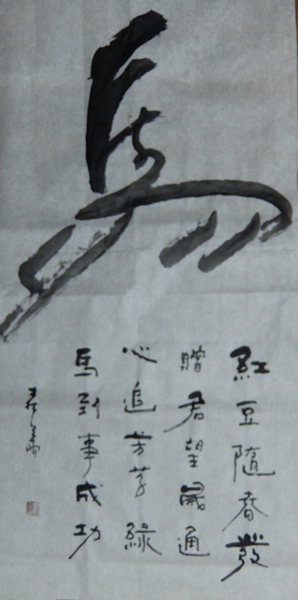 馬
紅豆隨春發
贈君望通
心追芳草綠
馬到事成功